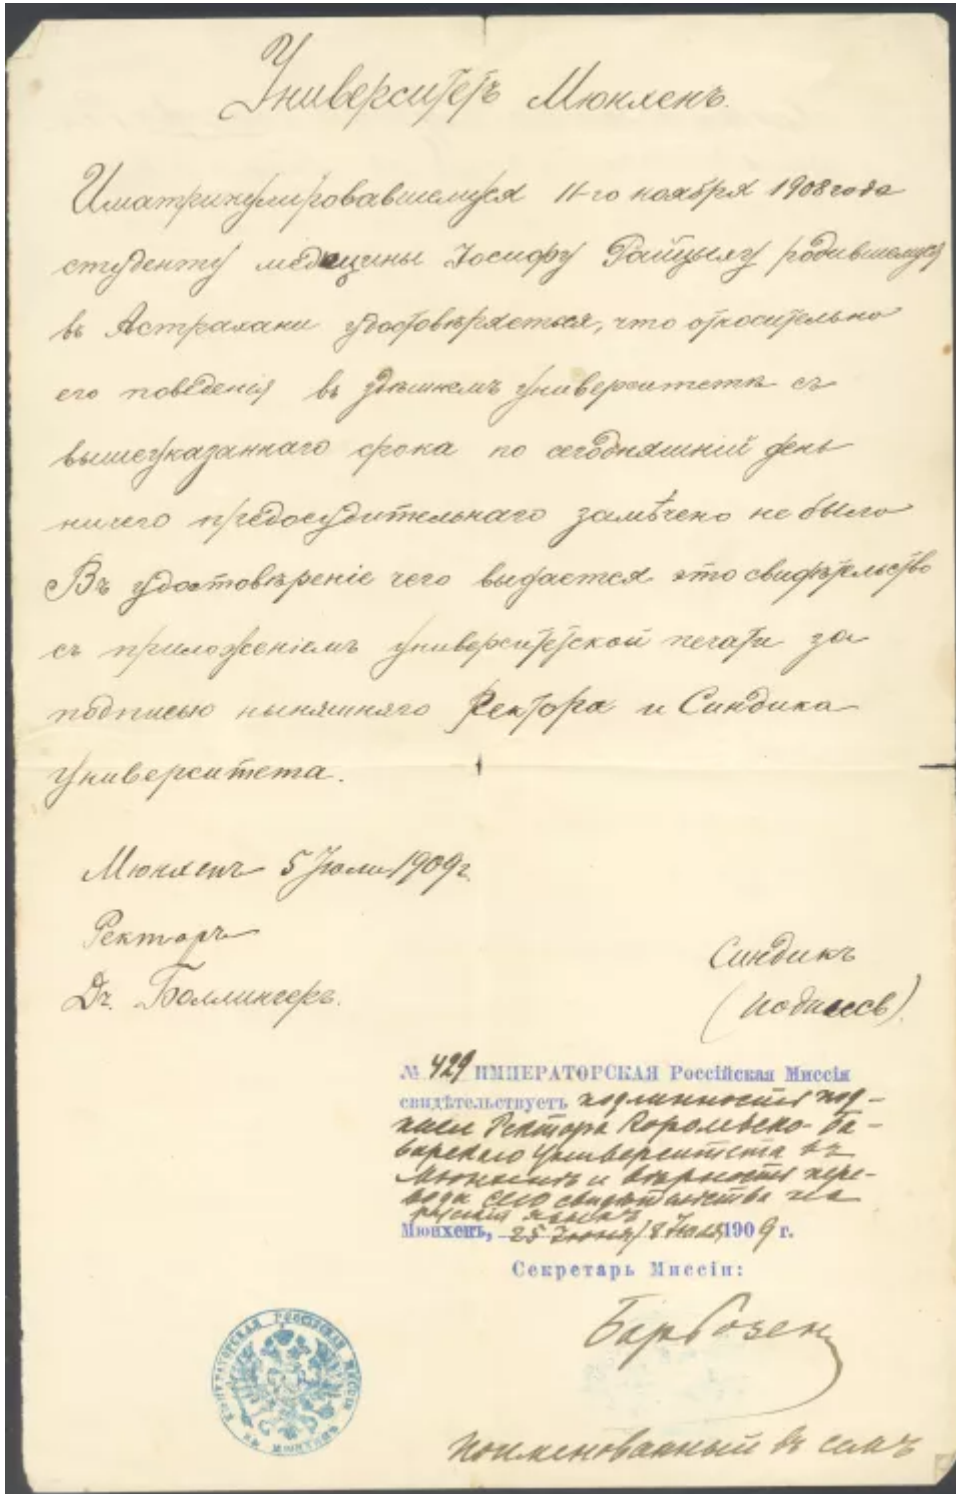 Университетъ Мюнхенъ.
Иматрикулировавшемуся 11-го ноября 1908 года
студенту медицины Іосифу Райцыну родившемуся
въ Астрахани удостовѣряется, что относительно
его поведенія въ здѣшнемъ университетѣ съ
вышеуказаннаго срока по сегодняшній день
ничего предосудительнаго замѣчено не было
Въ удостовѣреніе чего выдается это свидѣтельство
съ приложеніемъ университетской печати за
подписью нынѣшняго Ректора и Синдика
университета.
Мюнхенъ 5 Іюли 1909 г
Ректоръ
Dr. Боллингеръ.
Синдикъ
(подпись).
№ 429 ИМПЕРАТОРСКАЯ Россійская Миссія
свидѣтельствуетъ подлинность под-
писи Ректора Королевско-Ба-
варскаго Университета въ
Мюнхенѣ и вѣрность пере-
вода сего свидѣтельства на
русскій языкъ
Мюнхенъ, 25 Іюня/8 Іюля 1909 г.
Секретарь Миссіи:
ИМПЕРАТОРСКАЯ РОССІЙСКАЯ МИССІЯ
ВЪ МЮНХЕНѢ
поименованный въ семъ